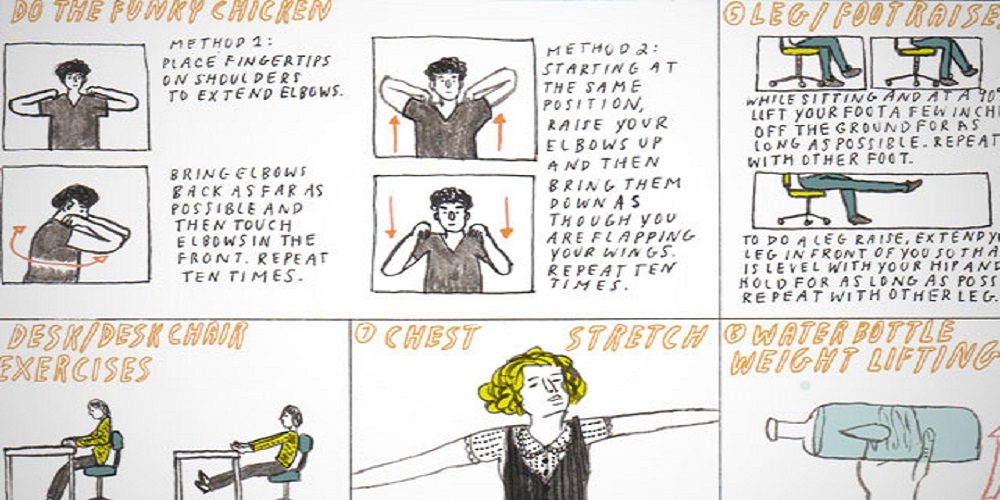 DO THE FUNKY CHICKEN
METHOD 1:
PLACE FINGERTIPS
ON SHOULDERS
TO EXTEND ELBOWS.
BRING ELBOWS
BACK AS FAR AS
POSSIBLE AND
THEN TOUCH
ELBOWS IN THE
FRONT. REPEAT
TEN TIMES.
METHOD 2:
STARTING AT
THE SAME
POSITION,
RAISE YOUR
ELBOWS UP
AND THEN
BRING THEM
DOWN AS
THOUGH YOU
ARE FLAPPING
YOUR WINGS.
REPEAT TEN
TIMES.
5 LEG/FOOT RAISE
WHILE SITTING AND AT A 90°
LIFT YOUR FOOT A FEW INCH
OFF THE GROUND FOR AS
LONG AS POSSIBLE. REPEAT
WITH OTHER FOOT.
TO DO A LEG RAISE, EXTEND Y
LEG IN FRONT OF YOU SO THA
IS LEVEL WITH YOUR HIP AN
HOLD FOR AS LONG AS POSS
REPEAT WITH OTHER LEG.
DESK/DESK CHAIR
EXERCISES
7 CHEST STRETCH
8 WATER BOTTLE
WEIGHT LIFTING